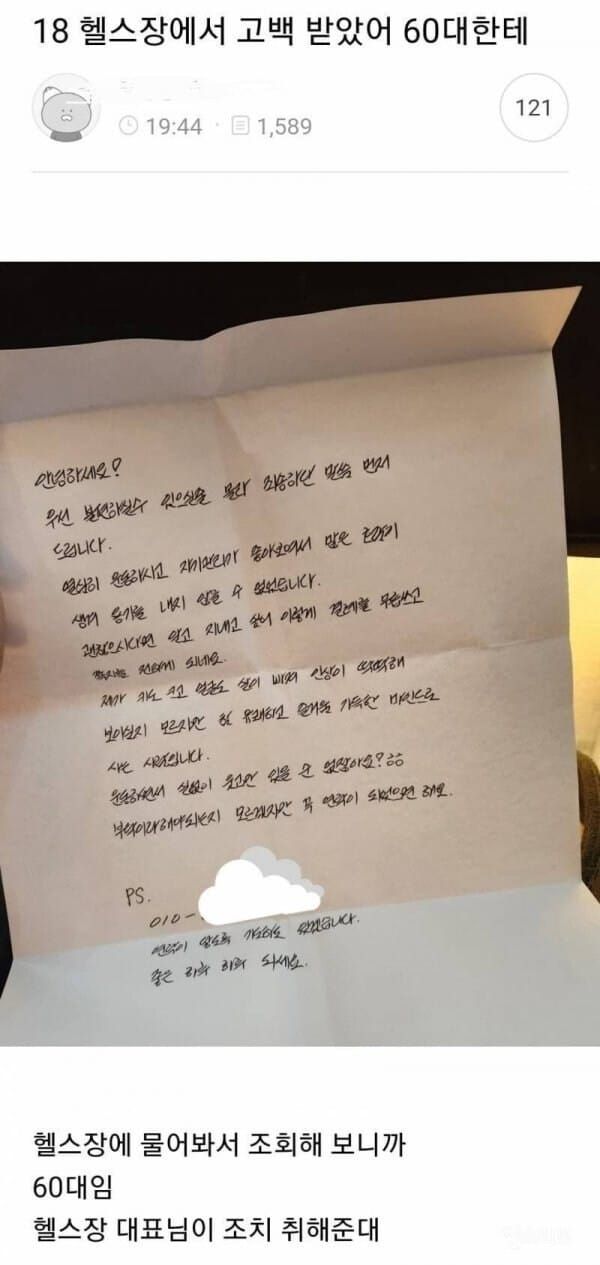 18 헬스장에서 고백 받았어 60대한테
19:44 · 1,589
121
안녕하세요?
우선 불편하실수 있으실줄 몰라 죄송하단 말씀 먼저
드립니다.
열심히 운동하시고 자기관리가 좋아보여서 많은 호감이
생겨 용기를 내지 않을 수 없었습니다.
괜찮으시다면 알고 지내고 싶어 이렇게 결례를 무릅쓰고
쪽지를 전하게 되네요.
제가 키도 크고 얼굴도 살이 빠져 인상이 딱딱해
보이실지 모르지만 참 유쾌하고 즐거움 가득한 마인드로
사는 사람입니다.
운동하면서 실없이 웃고만 있을 순 없잖아요? ㅎㅎ
부탁이라해야되는지 모르겠지만 꼭 연락이 되었으면 해요.
PS.
010-
연락이 없도록 기도하도 있겠습니다.
좋은 하루 하루 되세요.
헬스장에 물어봐서 조회해 보니까
60대임
헬스장 대표님이 조치 취해준대